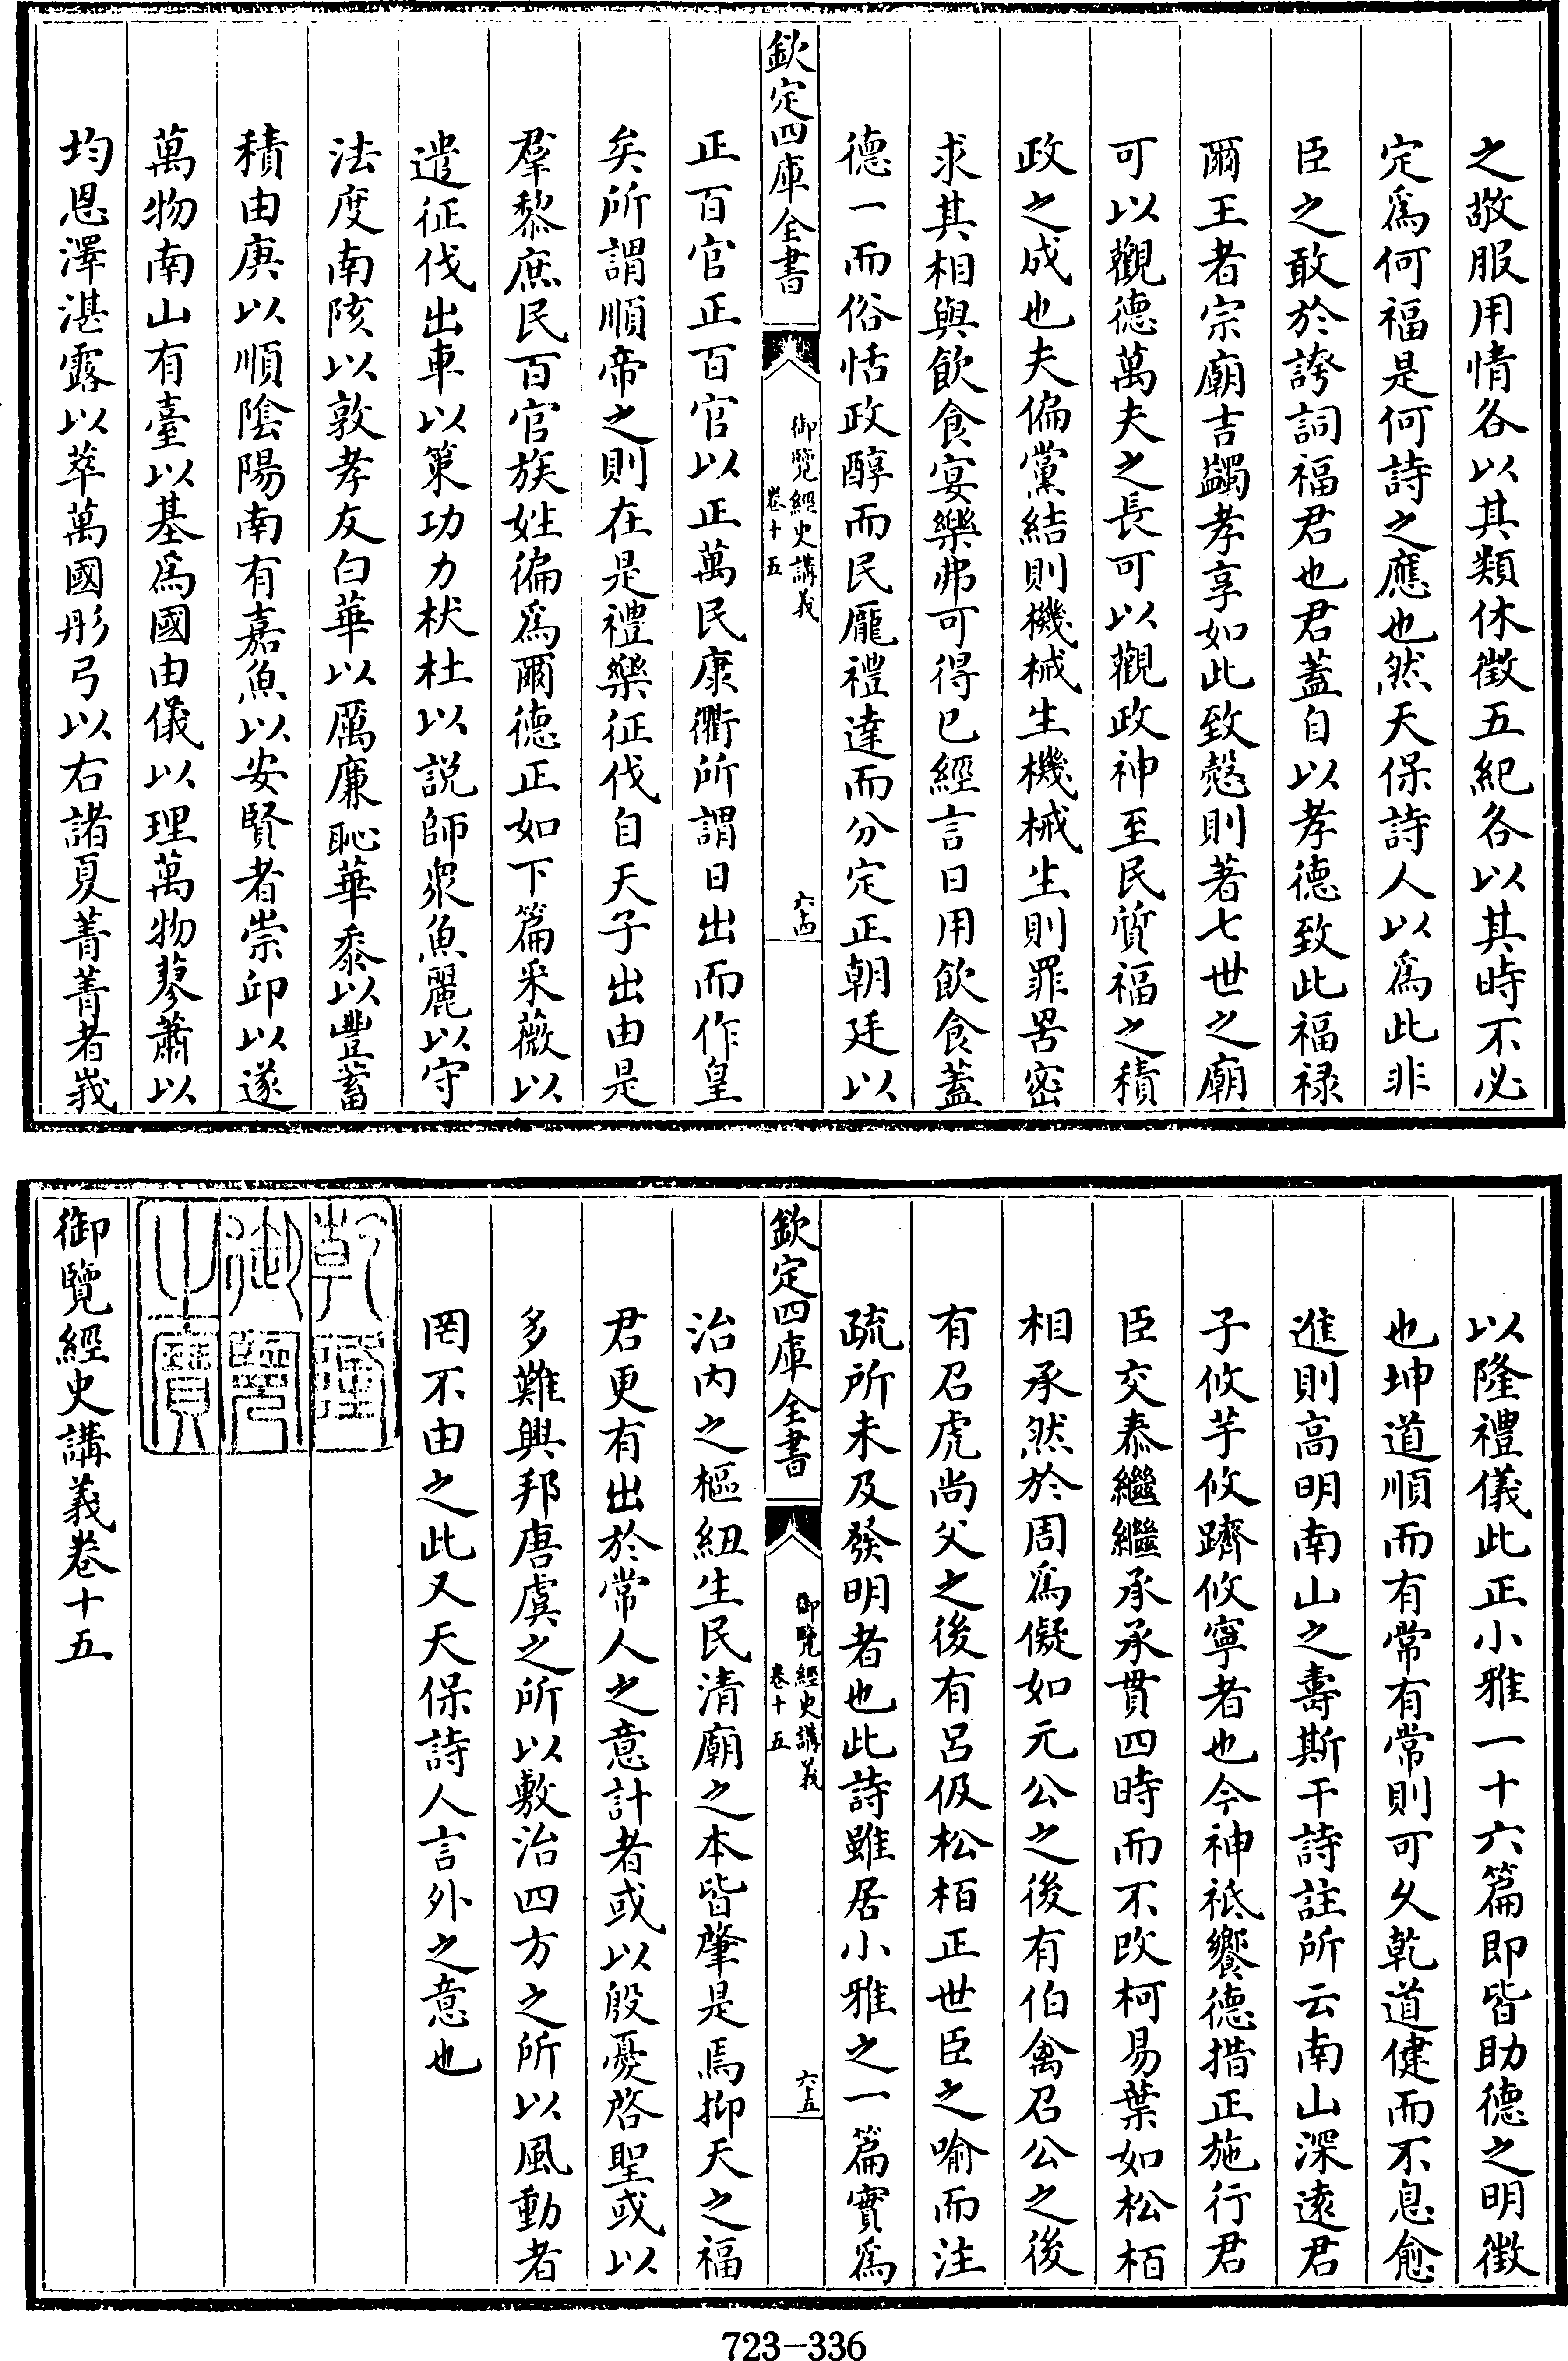 之敬服用情各以其類休徵五紀各以其時不必
定爲何福是何詩之應也然天保詩人以爲此非
臣之敢於誇詞福君也君蓋自以孝德致此福禄
爾王者宗廟吉蠲孝享如此致慤則著七世之廟
可以觀德萬夫之長可以觀政神至民質福之積
政之成也夫偏黨結則機械生機械生則罪罟密
求其相與飲食宴樂弗可得已經言日用飲食蓋
德一而俗恬政醇而民龎禮達而分定正朝廷以
欽定四庫全書
御覽經史講義
卷十五
六十四
正百官正百官以正萬民康衢所謂日出而作皇
矣所謂順帝之則在是禮樂征伐自天子出由是
羣黎庶民百官族姓徧爲爾德正如下篇采薇以
遣征伐出車以策功力杕杜以説師衆魚麗以守
法度南陔以敦孝友白華以厲廉恥華黍以豐蓄
積由庚以順陰陽南有嘉魚以安賢者崇邱以遂
萬物南山有臺以基爲國由儀以理萬物蓼蕭以
均恩澤湛露以萃萬國彤弓以右諸夏菁菁者莪
以隆禮儀此正小雅一十六篇即皆助德之明徵
也坤道順而有常有常則可久乾道健而不息愈
進則高明南山之壽斯干詩註所云南山深遠君
子攸芋攸躋攸寧者也今神祗饗德措正施行君
臣交泰繼繼承承貫四時而不改柯易葉如松栢
相承然於周爲儗如元公之後有伯禽召公之後
有召虎尚父之後有呂伋松栢正世臣之喻而注
疏所未及發明者也此詩雖居小雅之一篇實爲
欽定四庫全書
御覽經史講義
卷十五
六十五
治内之樞紐生民清廟之本皆肇是焉抑天之福
君更有出於常人之意計者或以殷憂啓聖或以
多難興邦唐虞之所以敷治四方之所以風動者
罔不由之此又天保詩人言外之意也
乾隆
御覽
之寶
御覽經史講義卷十五
723-336